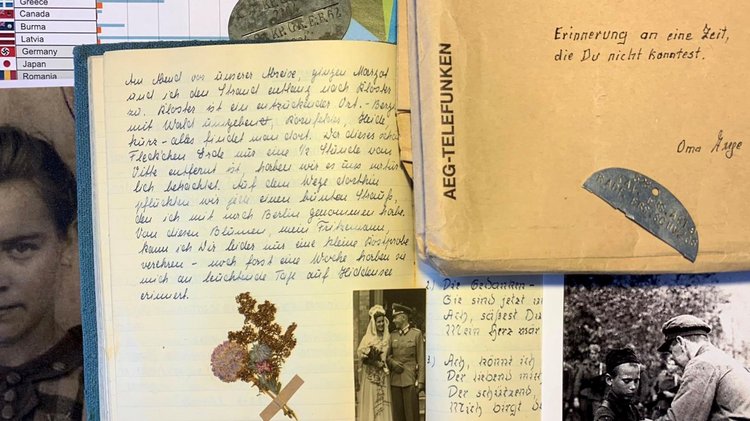 Greece
Canada
Burma
Latvia
Germany
Japan
Romania
Am Abend vor unserer Abreise, gingen Margot
und ich den Strand entlang nach Kloster
zu. Kloster ist ein entzückender Ort. - Berge
mit Wald umgebend, Kornfelder, Heide
kurz - alles findet man dort. Da dieses schöne
Fleckchen Erde nur eine ½ Stunde von
Vitte entfernt ist, haben wir es uns natür-
lich betrachtet. Auf dem Wege dorthin
pflückten wir jede einen bunten Strauß,
den ich mit nach Berlin genommen habe.
Von diesen Blumen, mein Fritzmann,
kann ich Dir leider nur eine kleine Kostprobe
verehren - noch fast eine Woche haben sie
mich an leuchtende Tage auf Hiddensee
erinnert.
AEG-TELEFUNKEN
Erinnerung an eine Zeit,
die Du nicht konntest.
Oma Inge
2.) Die Gedanken -
Sie sind jetzt
Ach, säßest Du
Mein Herz wär
3.) Ach, könnt ich
Der liebend mich
Der schützend
Mich birgt